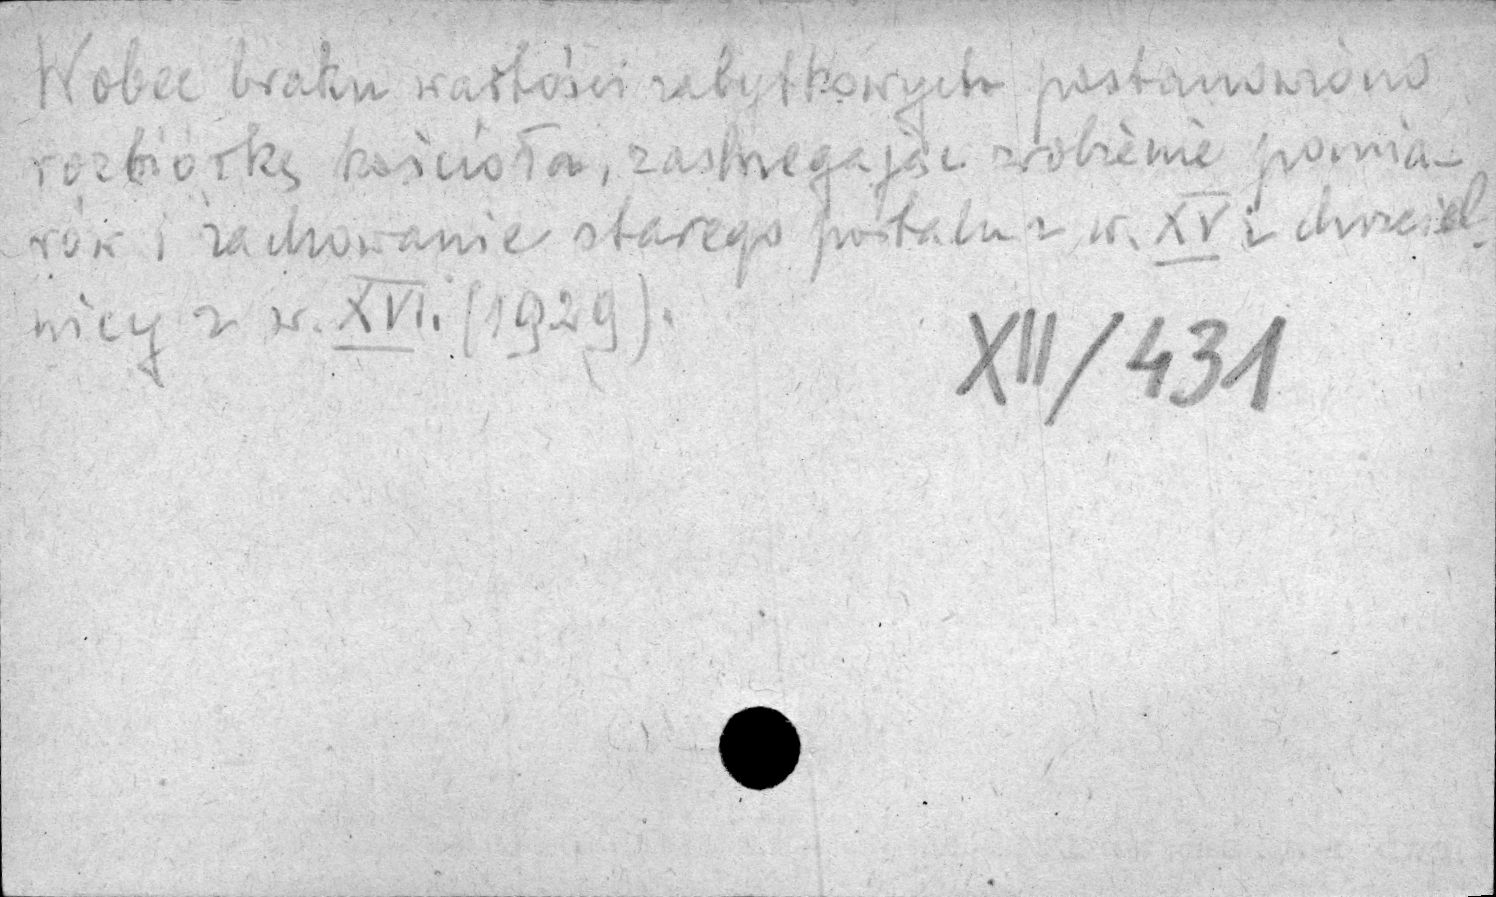 Wobec braku wartości zabytkowych postanowiono
rozbiórkę kościoła, zastrzegając zrobienie pomia-
rów i zachowanie starego portalu z w. XV i chrzciel-
nicy z w. XVI. (1929).
XII/431